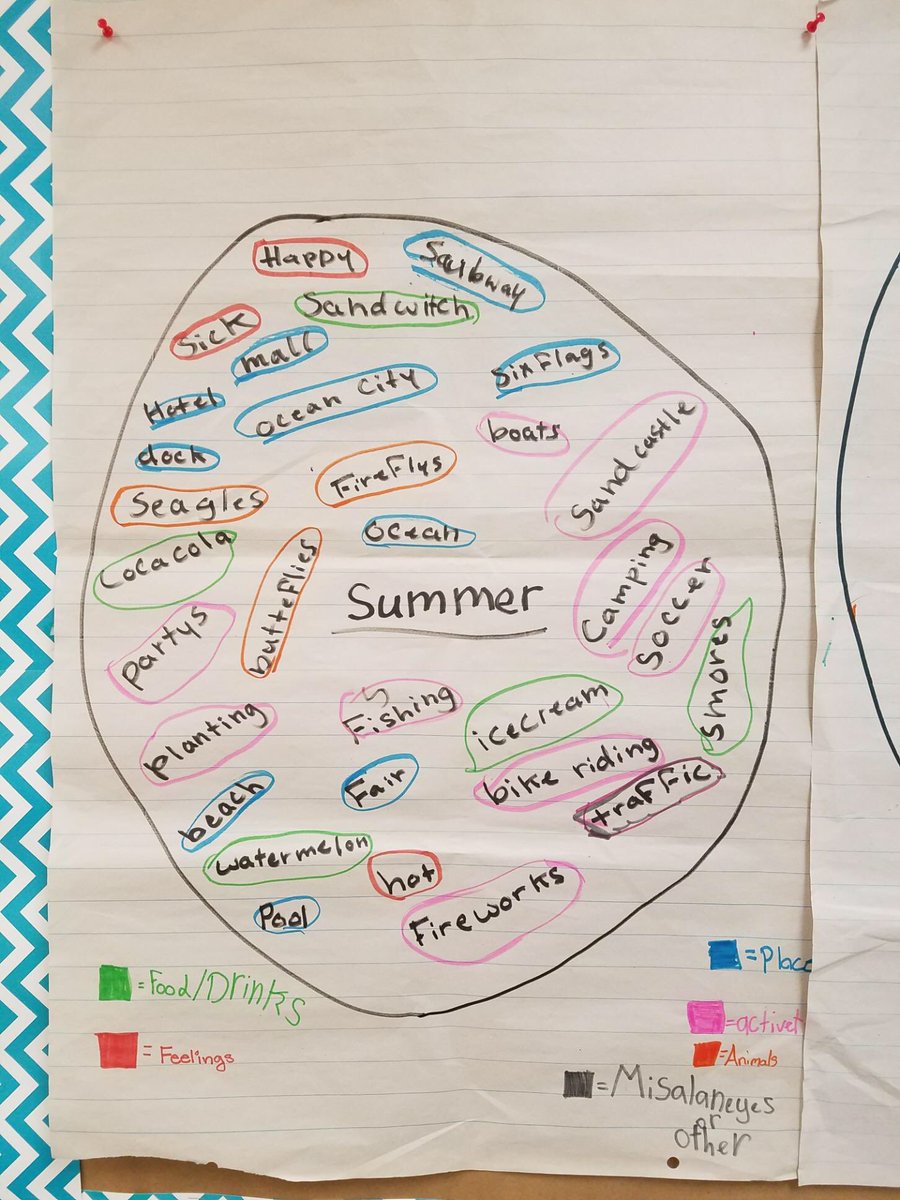 Happy
Saubway
Sandwitch
Sick
mall
SixFlags
Hotel
Ocean City
boats
Sandcastle
dock
FireFlys
Seagles
Ocean
Cocacola
butteflies
Summer
Camping
Soccer
partys
Smores
Fishing
planting
icecream
bike riding
Fair
traffic
beach
watermelon
hot
Fireworks
Pool
= Food/Drinks
= Feelings
=Place
=activet
=Animals
=Misalaneyes
or
other